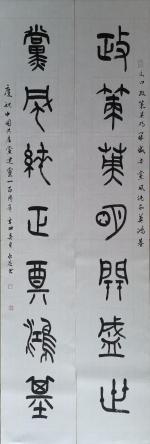 政策英明開盛世
黨風純正奠鴻基
慶祝中國共產黨建黨一百周年